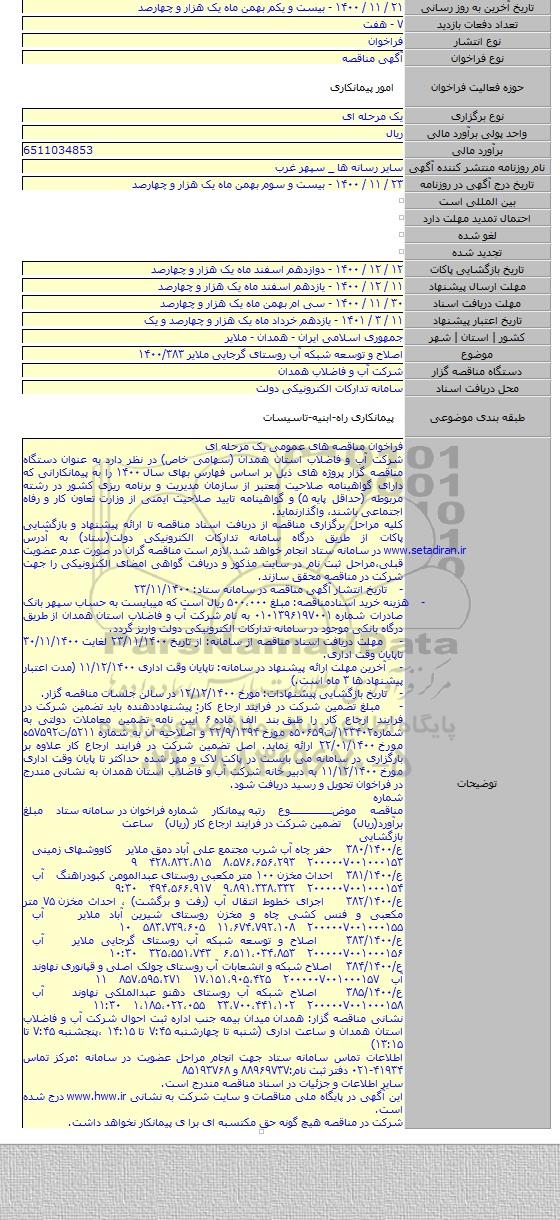 تاریخ آخرین به روز رسانی ۲۱ / ۱۱ / ۱۴۰۰ - بیست و یکم بهمن ماه یک هزار و چهارصد
تعداد دفعات بازدید ۷ - هفت
نوع انتشار فراخوان
نوع فراخوان آگهی مناقصه
حوزه فعالیت فراخوان امور پیمانکاری
نوع برگزاری یک مرحله ای
واحد پولی برآورد مالی ریال
برآورد مالی 6511034853
نام روزنامه منتشر کننده آگهی سایر رسانه ها _ سپهر غرب
تاریخ درج آگهی در روزنامه ۲۳ / ۱۱ / ۱۴۰۰ - بیست و سوم بهمن ماه یک هزار و چهارصد
بین المللی است
احتمال تمدید مهلت دارد
لغو شده
تجدید شده
تاریخ بازگشایی پاکات ۱۲ / ۱۲ / ۱۴۰۰ - دوازدهم اسفند ماه یک هزار و چهارصد
مهلت ارسال پیشنهاد ۱۱ / ۱۲ / ۱۴۰۰ - یازدهم اسفند ماه یک هزار و چهارصد
مهلت دریافت اسناد ۳۰ / ۱۱ / ۱۴۰۰ - سی ام بهمن ماه یک هزار و چهارصد
تاریخ اعتبار پیشنهاد ۱۱ / ۳ / ۱۴۰۱ - یازدهم خرداد ماه یک هزار و چهارصد و یک
کشور | استان | شهر جمهوری اسلامی ایران - همدان - ملایر
موضوع اصلاح و توسعه شبکه آب روستای گرجایی ملایر ۱۴۰۰/۳۸۳
دستگاه مناقصه گزار شرکت آب و فاضلاب همدان
محل دریافت اسناد سامانه تدارکات الکترونیکی دولت
طبقه بندی موضوعی پیمانکاری راه-ابنیه-تاسیسات
توضیحات
فراخوان مناقصه های عمومی یک مرحله ای
شرکت آب و فاضلاب استان همدان (سهامی خاص) در نظر دارد به عنوان دستگاه
مناقصه گزار پروژه های ذیل بر اساس فهارس بهای سال ۱۴۰۰ را به پیمانکارانی که
دارای گواهینامه صلاحیت معتبر از سازمان مدیریت و برنامه ریزی کشور در رشته
مربوطه (حداقل پایه ۵) و گواهینامه تایید صلاحیت ایمنی از وزارت تعاون کار و رفاه
اجتماعی باشند، واگذارنماید.
کلیه مراحل برگزاری مناقصه از دریافت اسناد مناقصه تا ارائه پیشنهاد و بازگشایی
پاکات از طریق درگاه سامانه تدارکات الکترونیکی دولت(ستاد) به آدرس
www.setadiran.ir در سامانه ستاد انجام خواهد شد.لازم است مناقصه گران در صورت عدم عضویت
قبلی،مراحل ثبت نام در سایت مذکور و دریافت گواهی امضای الکترونیکی را جهت
شرکت در مناقصه محقق سازند.
- تاریخ انتشار آگهی مناقصه در سامانه ستاد: ۲۳/۱۱/۱۴۰۰
- هزینه خرید اسنادمناقصه: مبلغ ۵۰۰،۰۰۰ ریال است که میبایست به حساب سپهر بانک
صادرات شماره ۰۱۰۱۳۹۶۱۹۷۰۰۱ به نام شرکت آب و فاضلاب استان همدان از طریق
درگاه بانکی موجود در سامانه تدارکات الکترونیکی دولت واریز گردد.
- مهلت دریافت اسناد مناقصه از سامانه: از تاریخ ۲۳/۱۱/۱۴۰۰ لغایت ۳۰/۱۱/۱۴۰۰
تاپایان وقت اداری.
- آخرین مهلت ارائه پیشنهاد در سامانه: تاپایان وقت اداری ۱۱/۱۲/۱۴۰۰ (مدت اعتبار
پیشنهادها ۳ ماه است.)
- تاریخ بازگشایی پیشنهادات: مورخ ۱۲/۱۲/۱۴۰۰ در سالن جلسات مناقصه گزار.
- مبلغ تضمین شرکت در فرایند ارجاع کار: پیشنهاددهنده باید تضمین شرکت در
فرایند ارجاع کار را طبق بند الف ماده ۶ آیین نامه تضمین معاملات دولتی به
شماره۱۲۳۴۰۲/ت۵۰۶۵۹ه مورخ ۲۲/۹/۱۳۹۴ و اصلاحیه آن به شماره ۵۲۱۱/ت۵۷۵۹۲ه
مورخ ۲۲/۰۱/۱۴۰۰ ارائه نماید. اصل تضمین شرکت در فرایند ارجاع کار علاوه بر
بارگزاری در سامانه می بایست در پاکت لاک و مهر شده حداکثر تا پایان وقت اداری
مورخ ۱۱/۱۲/۱۴۰۰ به دبیرخانه شرکت آب و فاضلاب استان همدان به نشانی مندرج
در فراخوان تحویل و رسید دریافت شود.
شماره
مناقصه موضـــــوع رتبه پیمانکار شماره فراخوان در سامانه ستاد مبلغ
برآورد(ریال) تضمین شرکت در فرایند ارجاع کار (ریال) ساعت
بازگشایی
ع/۳۸۰/۱۴۰۰ حفر چاه آب شرب مجتمع علی آباد دمق ملایر کاووشهای زمینی
۲۰۰۰۰۰۷۰۰۱۰۰۰۱۵۳ ۸،۵۷۶،۶۵۶،۲۹۳ ۴۲۸،۸۳۲،۸۱۵ ۹
ع/۳۸۱/۱۴۰۰ احداث مخزن ۱۰۰ متر مکعبی روستای عبدالمومن کبودراهنگ آب
۲۰۰۰۰۰۷۰۰۱۰۰۰۱۵۴ ۹،۸۹۱،۳۳۸،۳۳۲ ۴۹۴،۵۶۶،۹۱۷ ۹:۳۰
ع/۳۸۲/۱۴۰۰ اجرای خطوط انتقال آب (رفت و برگشت) ، احداث مخزن ۷۵ متر
مکعبی و فنس کشی چاه و مخزن روستای شیرین آباد ملایر آب
۲۰۰۰۰۰۷۰۰۱۰۰۰۱۵۵ ۱۱،۶۷۴،۷۹۲،۱۰۸ ۵۸۳،۷۳۹،۶۰۵ ۱۰
ع/۳۸۳/۱۴۰۰ اصلاح و توسعه شبکه آب روستای گرجایی ملایر آب
۲۰۰۰۰۰۷۰۰۱۰۰۰۱۵۶ ۶،۵۱۱،۰۳۴،۸۵۳ ۳۲۵،۵۵۱،۷۴۳ ۱۰:۳۰
ع/۳۸۴/۱۴۰۰ اصلاح شبکه و انشعابات آب روستای چولک اصلی و قپانوری نهاوند
آب ۲۰۰۰۰۰۷۰۰۱۰۰۰۱۵۷ ۱۷،۱۵۱،۹۰۵،۴۲۵ ۸۵۷،۵۹۵،۲۷۱ ۱۱
ع/۳۸۵/۱۴۰۰ اصلاح شبکه آب روستای دهنو عبدالملکی نهاوند آب
۲۰۰۰۰۰۷۰۰۱۰۰۰۱۵۸ ۲۳،۷۰۰،۴۴۱،۱۰۲ ۱،۱۸۵،۰۲۲،۰۵۵ ۱۱:۳۰
نشانی مناقصه گزار: همدان میدان بیمه جنب اداره ثبت احوال شرکت آب و فاضلاب
استان همدان و ساعت اداری (شنبه تا چهارشنبه ۷:۴۵ تا ۱۴:۱۵ ،پنجشنبه ۷:۴۵ تا
۱۳:۱۵)
اطلاعات تماس سامانه ستاد جهت انجام مراحل عضویت در سامانه :مرکز تماس
۰۲۱-۴۱۹۳۴ دفتر ثبت نام:۸۸۹۶۹۷۳۷ و ۸۵۱۹۳۷۶۸
سایر اطلاعات و جزئیات در اسناد مناقصه مندرج است.
این آگهی در پایگاه ملی مناقصات و سایت شرکت به نشانی www.hww.ir درج شده
است.
شرکت در مناقصه هیچ گونه حق مکتسبه ای برا ی پیمانکار نخواهد داشت.